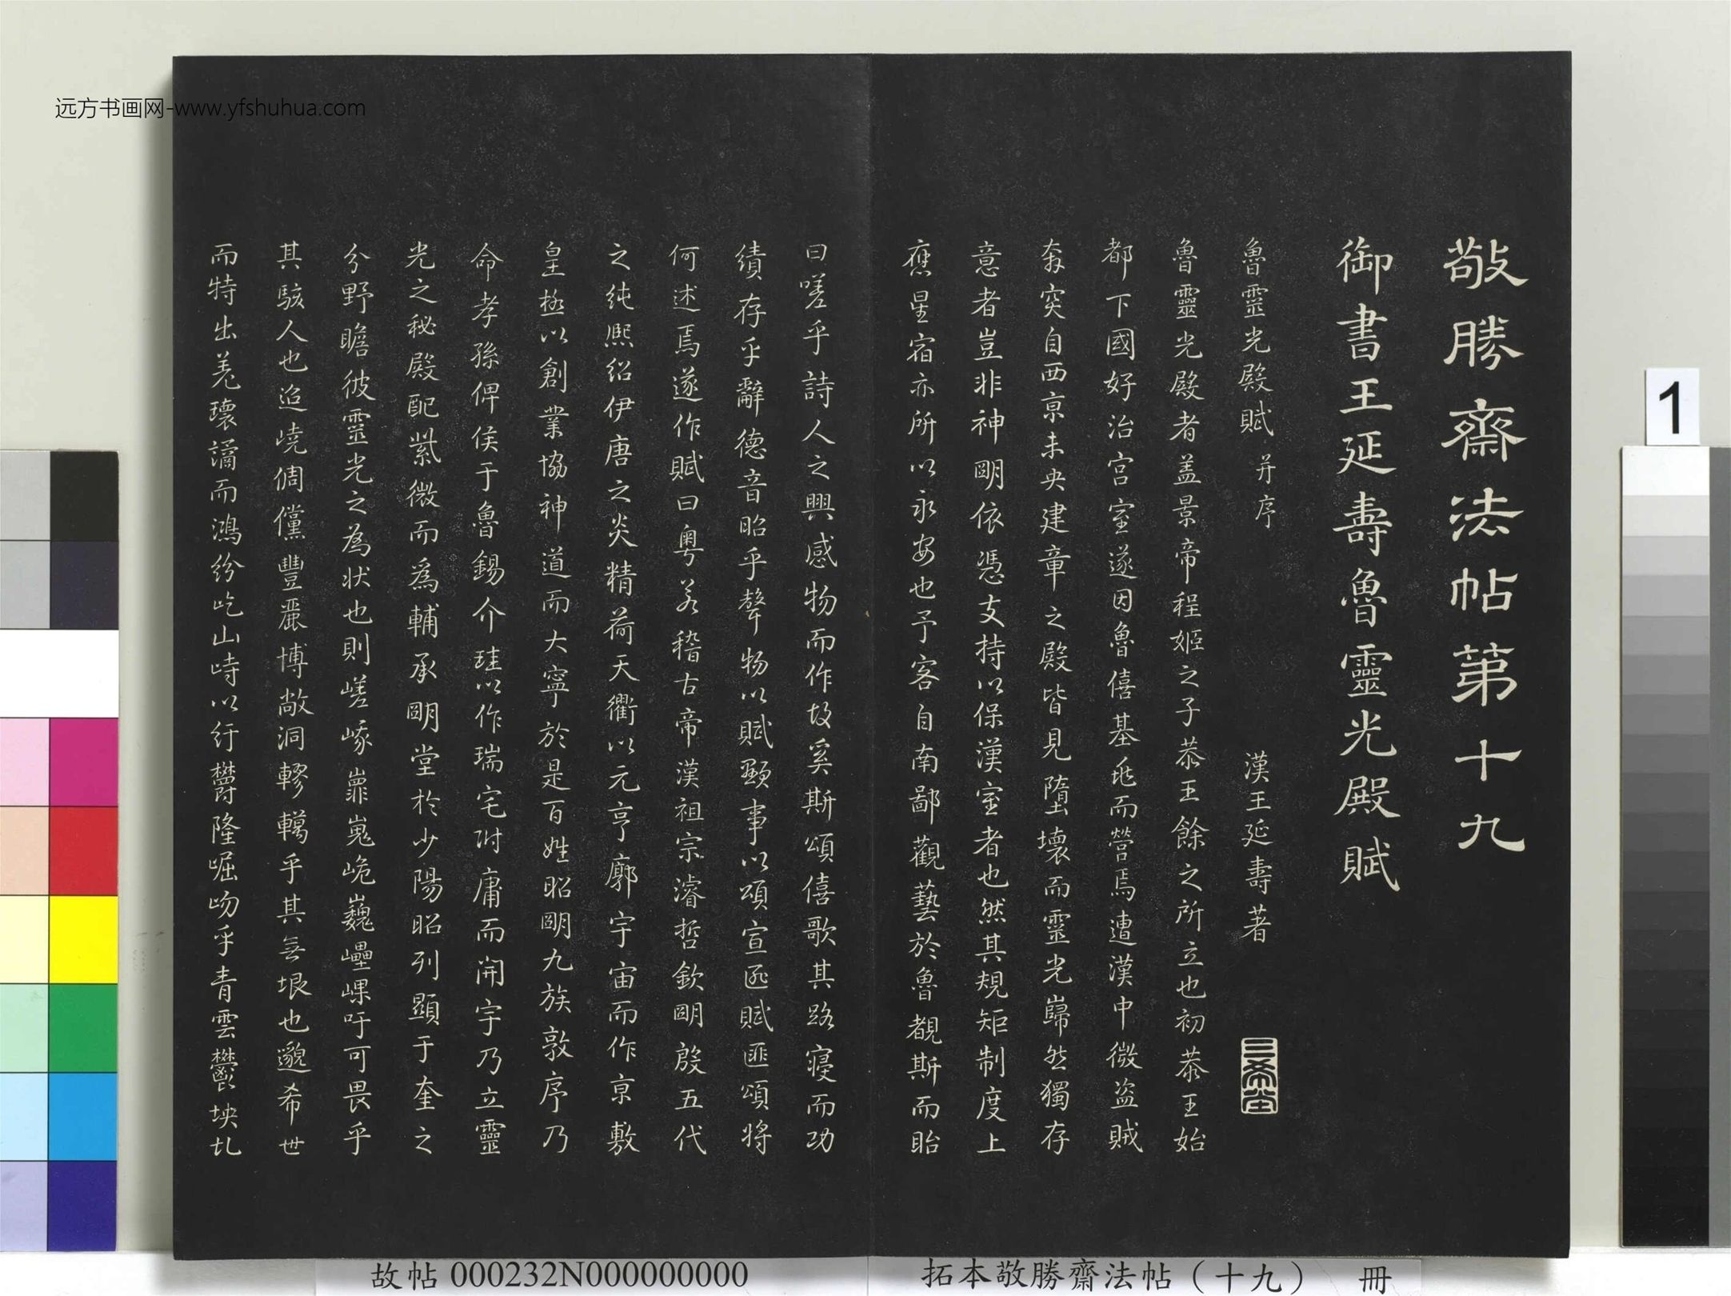 敬勝齋法帖第十九
御書王延壽魯靈光殿賦
魯靈光殿賦 并序 漢王延壽著
三希堂
魯靈光殿者盖景帝程姬之子恭王餘之所立也初恭王始
都下國好治宮室遂因魯僖基兆而營焉遭漢中微盗賊
奔突自西京未央建章之殿皆見隳壞而靈光巋然獨存
意者豈非神朙依憑支持以保漢室者也然其規矩制度上
應星宿亦所以永安也予客自南鄙觀藝於魯覩斯而眙
曰嗟乎詩人之興感物而作故奚斯頌僖歌其路寢而功
績存乎辭德音昭乎聲物以賦顯事以頌宣匪賦匪頌將
何述焉遂作賦曰粤若稽古帝漢祖宗濬哲欽朙殷五代
之純熙紹伊唐之炎精荷天衢以元亨廓宇宙而作京敷
皇極以創業協神道而大寧於是百姓昭朙九族敦序乃
命孝孫俾侯于魯錫介珪以作瑞宅附庸而開宇乃立靈
光之秘殿配紫微而為輔承朙堂於少陽昭列顯于奎之
分野瞻彼靈光之為狀也則嵯峨嶵嵬峞巍㠥㟮吁可畏乎
其駭人也迢嶢倜儻豐麗博敞洞轇轕乎其無垠也邈希世
而特出羌瓌譎而鴻紛屹山峙以紆鬱隆崛岉乎青雲鬱坱圠
远方书画网-www.yfshuhua.com
1
故帖 000232N000000000
拓本敬勝齋法帖（十九） 冊